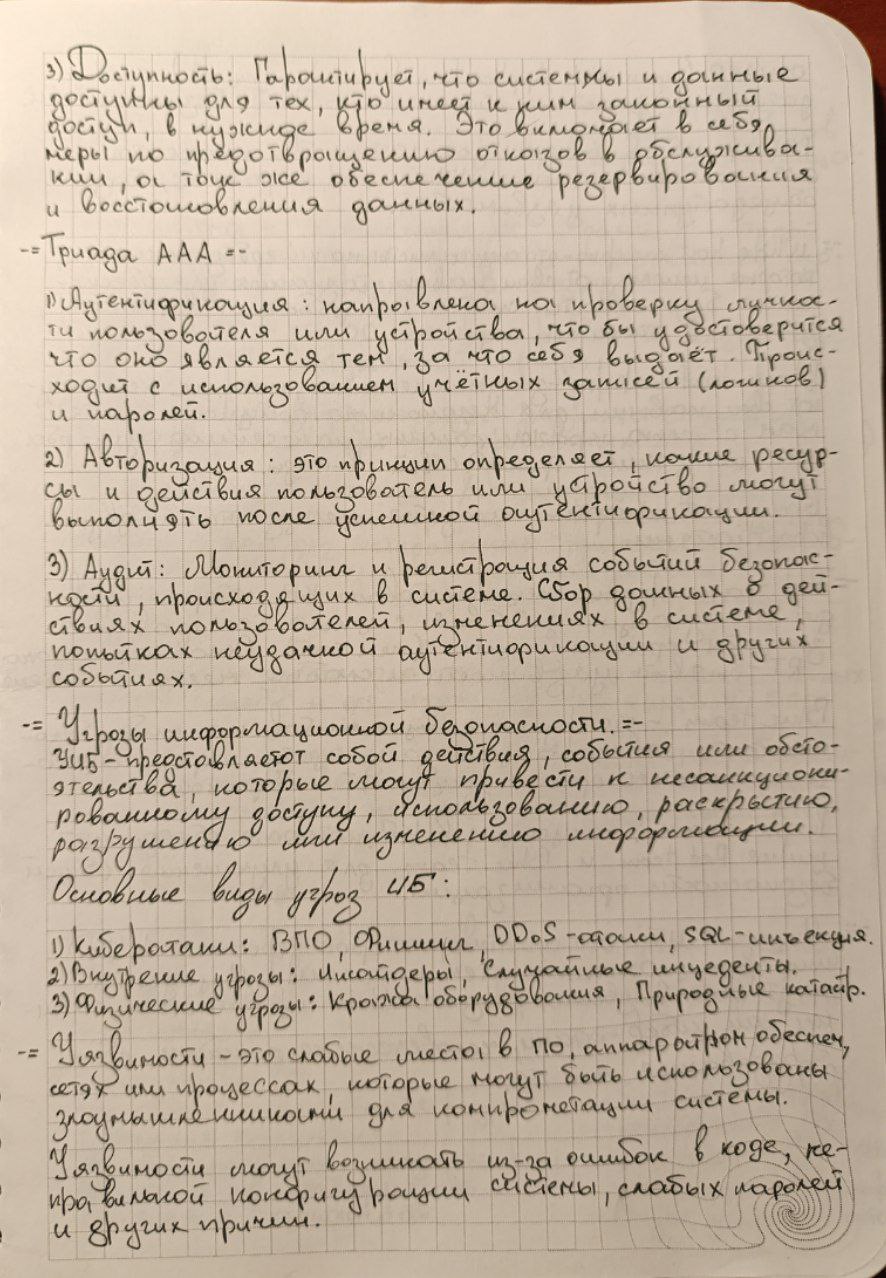 3) Доступность: Гарантирует, что системы и данные
доступны для тех, кто имеет к ним законный
доступ, в нужное время. Это включает в себя
меры по предотвращению отказов в обслужива-
нии, а так же обеспечение резервирования
и восстановления данных.
-= Триада ААА =-
1) Аутентификация: направлена на проверку лично-
ти пользователя или устройства, что бы удостоверится
что оно является тем, за что себя выдаёт. Проис-
ходит с использованием учётных записей (логинов)
и паролей.
2) Авторизация: это принцип определяет, какие ресур-
сы и действия пользователь или устройство могут
выполнять после успешной аутентификации.
3) Аудит: Мониторинг и регистрация событий безопас-
ности, происходящих в системе. Сбор данных о дей-
ствиях пользователей, изменениях в системе,
попытках неудачной аутентификации и других
событиях.
-= Угрозы информационной безопасности. =-
УИБ - представляют собой действия, события или обсто-
ятельства, которые могут привести к несанкциони-
рованному доступу, использованию, раскрытию,
разрушению или изменению информации.
Основные виды угроз ИБ:
1) Кибератаки: ВПО, Фишинг, DDoS-атаки, SQL-инъекция.
2) Внутрение угрозы: Инсайдеры, Случайные инцеденты.
3) Физические угрозы: Кража оборудования, Природные катайф.
-= Уязвимости - это слабые места в ПО, аппаратном обеспеч,
сетях или процессах, которые могут быть использованы
злоумышленниками для компрометации системы.
Уязвимости могут возникать из-за ошибок в коде, не-
правильной конфигурации системы, слабых паролей
и других причин.